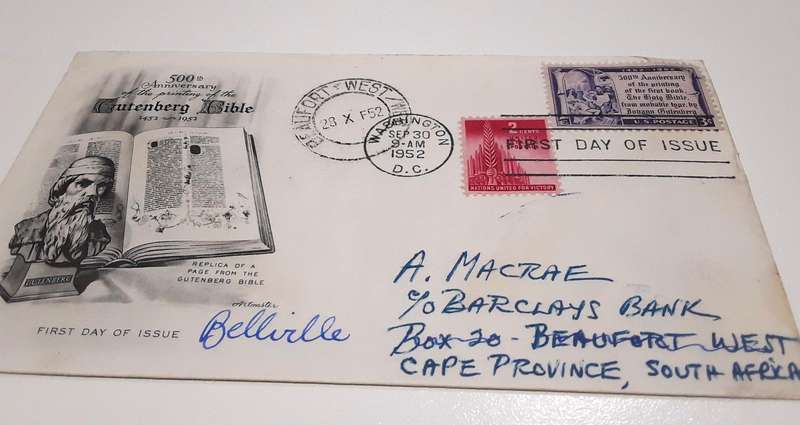 500th
Anniversary
of the printing of the
Gutenberg Bible
1452 1952
GUTENBERG
REPLICA OF A
PAGE FROM THE
GUTENBERG BIBLE
Artmaster
FIRST DAY OF ISSUE
Bellville
BEAUFORT-WEST
28 X F52
WASHINGTON
SEP 30
9-AM
1952
D.C.
2 CENTS
NATIONS UNITED FOR VICTORY
1452 1952
500th Anniversary
of the printing
of the first book,
The Holy Bible,
from movable type, by
Johann Gutenberg
3¢ U.S. POSTAGE 3¢
FIRST DAY OF ISSUE
A. MACRAE
c/o BARCLAYS BANK
Box 20 - BEAUFORT WEST
CAPE PROVINCE, SOUTH AFRICA